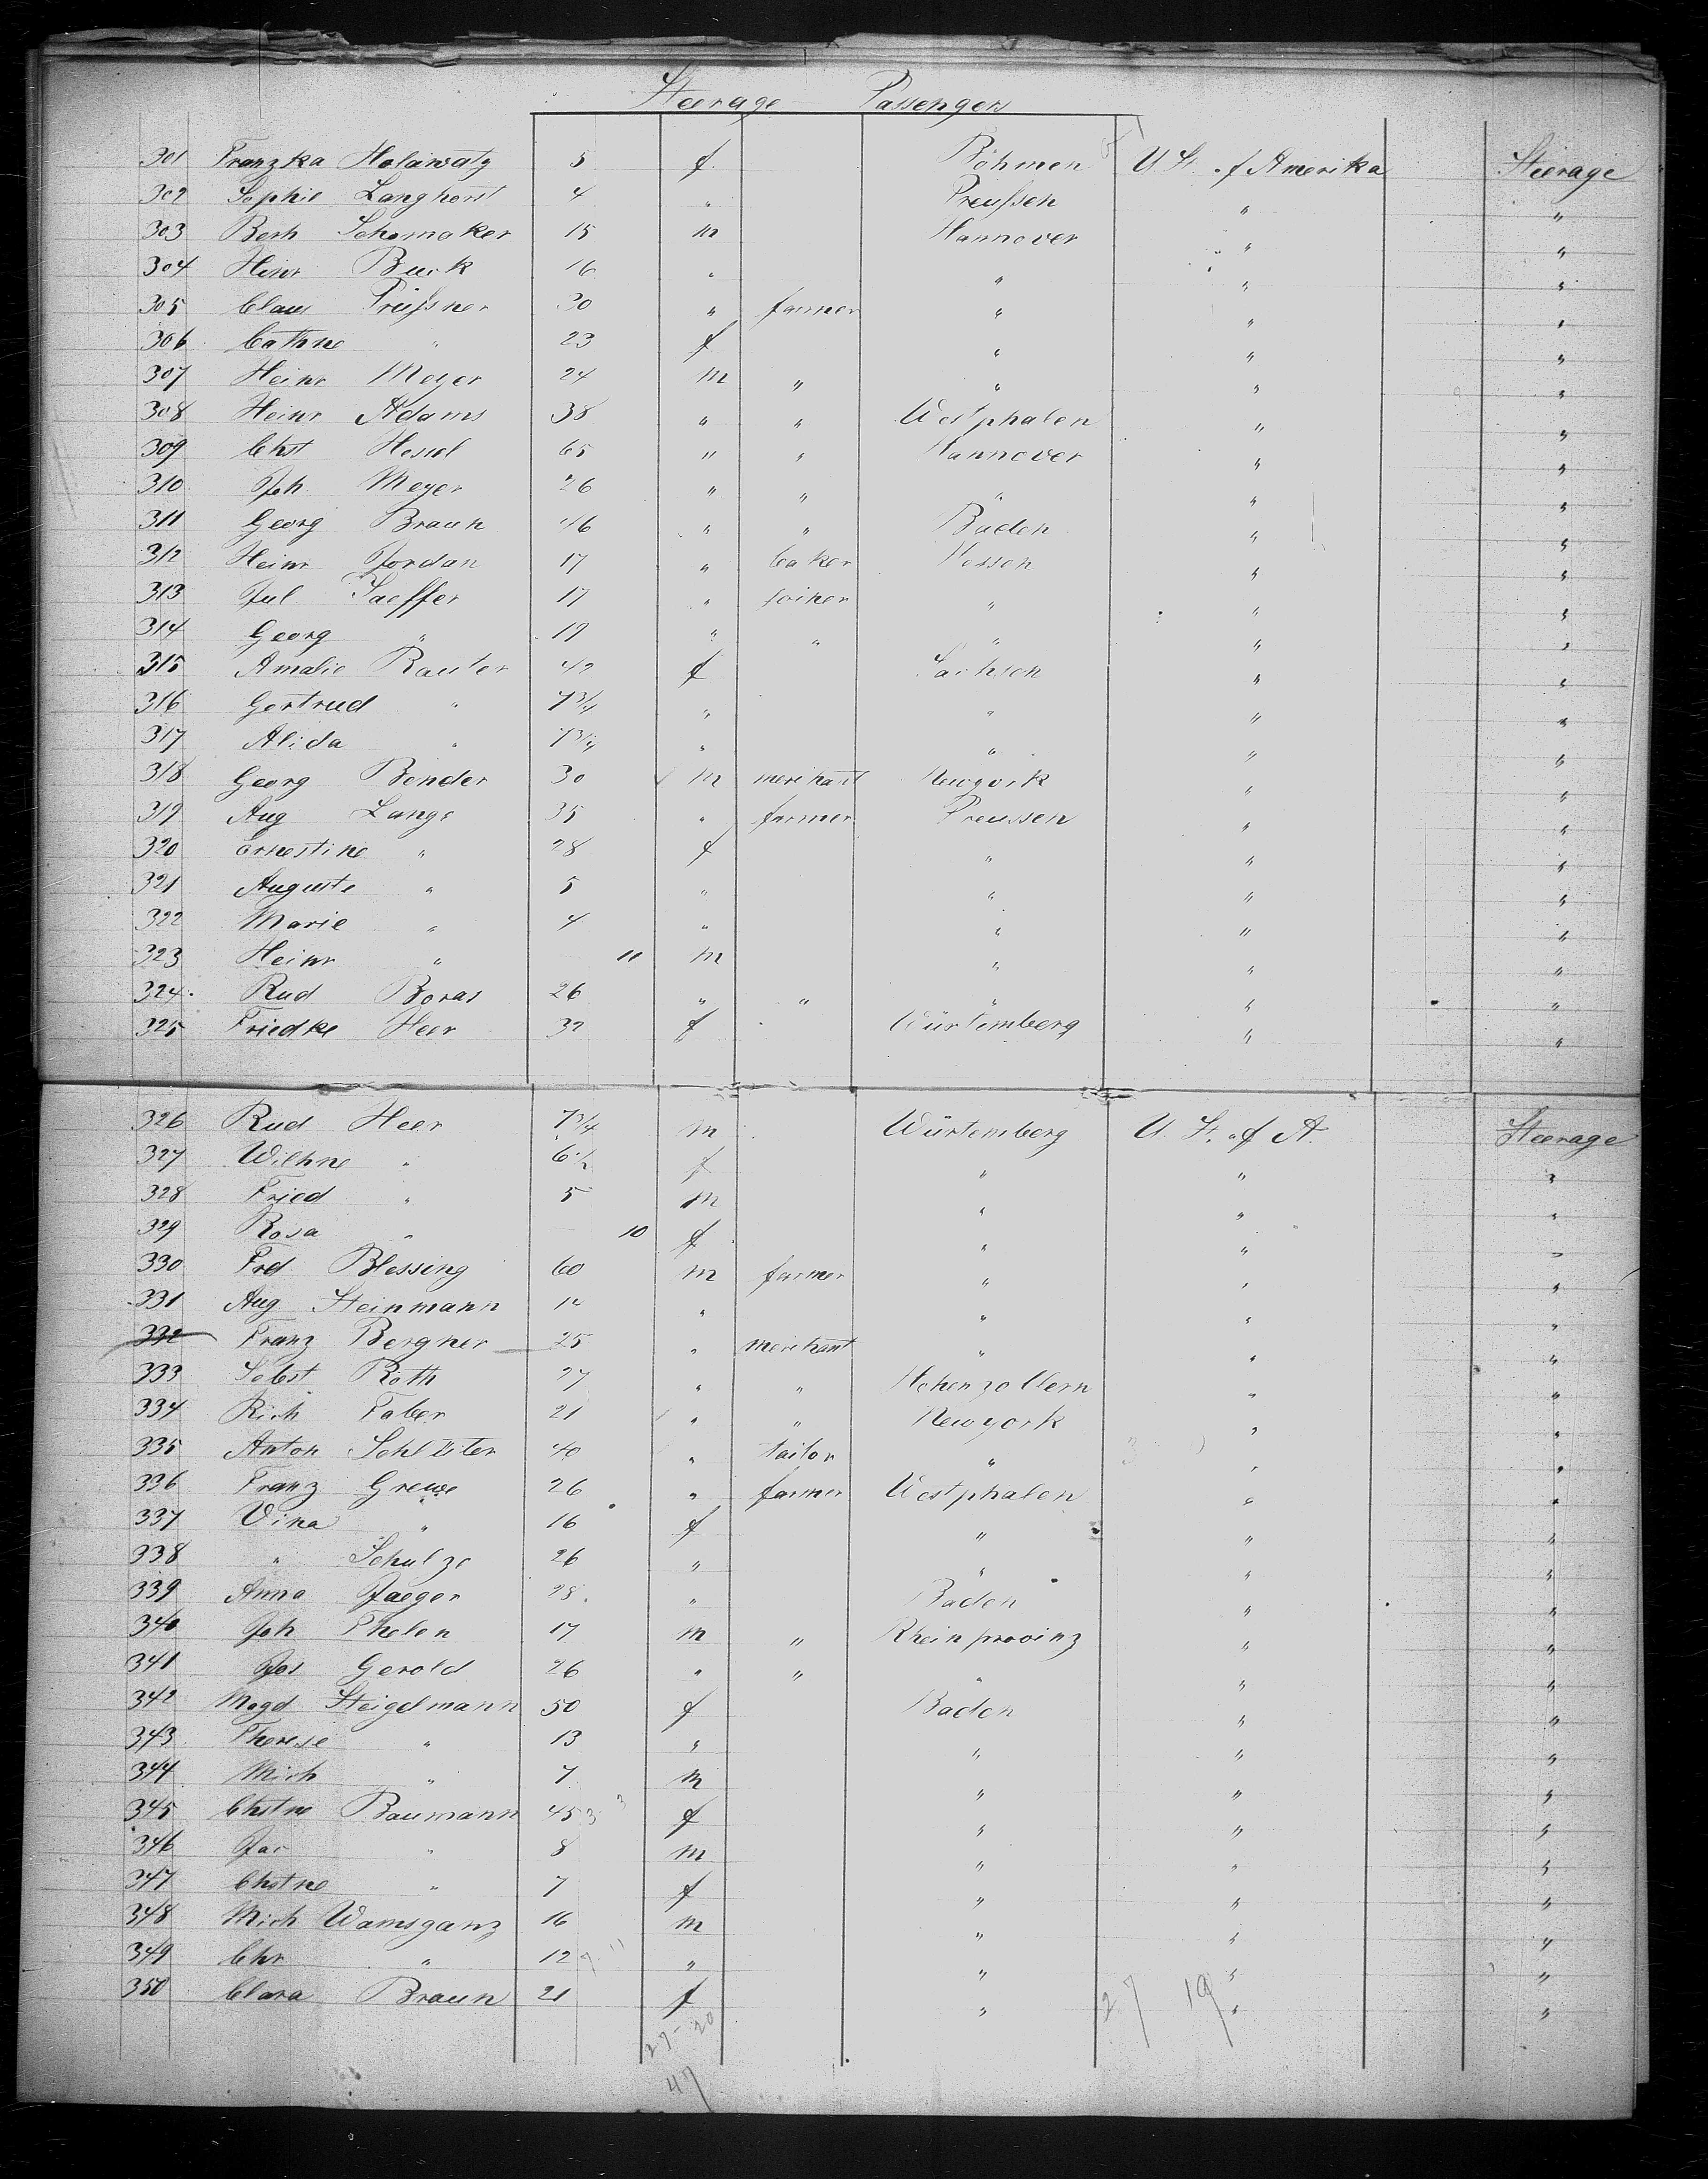 Steerage Passengers
301 Franzka Holawatz 5 f Böhmen U St. of Amerika Steerage
302 Sophie Langhorst 4 " Preußen " "
303 Berh Schomaker 15 m Hannover " "
304 Heinr Buck 16 " " " "
305 Claus Prüßner 30 " farmer " " "
306 Cathne " 23 f " " "
307 Heinr Meyer 24 m " " " "
308 Heinr Adams 38 " " Westphalen " "
309 Chst Hessel 65 " " Hannover " "
310 Joh Meyer 26 " " " " "
311 Georg Braun 46 " " Baden " "
312 Heinr Jordan 17 " baker Hessen " "
313 Jul Saeffer 17 " joiner " " "
314 Georg " 19 " " " " "
315 Amalie Rauter 42 f Sachsen " "
316 Gertrud " 7 3/4 " " " "
317 Alida " 7 3/4 " " " "
318 Georg Bender 30 m merchant Newyork " "
319 Aug Lange 35 " farmer Preussen " "
320 Ernestine " 28 f " " "
321 Auguste " 5 " " " "
322 Marie " 4 " " " "
323 Heinr " 11 m " " "
324 Rud Boras 26 " " " " "
325 Friedke Heer 32 f Würtemberg " "
326 Rud Heer 7 3/4 m Würtemberg U. St. of A. Steerage
327 Wilhne " 6 1/2 f " " "
328 Fried " 5 m " " "
329 Rosa " 10 f " " "
330 Frd Blessing 60 m farmer " " "
331 Aug Steinmann 14 " " " "
332 Franz Bergner 25 " merchant " " "
333 Sebst Roth 27 " " Hohenzollern " "
334 Rich Faber 21 " " Newyork " "
335 Anton Schlüter 40 " tailor " " "
336 Franz Grewe 26 " farmer Westphalen " "
337 Vina " 16 f " " "
338 " Schulze 26 " " " "
339 Anna Jaeger 28 " Baden " "
340 Joh Thelen 17 m " Rheinprovinz " "
341 Jos Gerold 26 " " " " "
342 Magd Steigelmann 50 f Baden " "
343 Therese " 13 " " " "
344 Mich " 7 m " " "
345 Chstne Baumann 45 f " " "
346 Jac " 8 m " " "
347 Chstne " 7 f " " "
348 Mich Wamsganz 16 m " " "
349 Chr " 12 " " " "
350 Clara Braun 21 f " " "
27 19
27 - 20
47